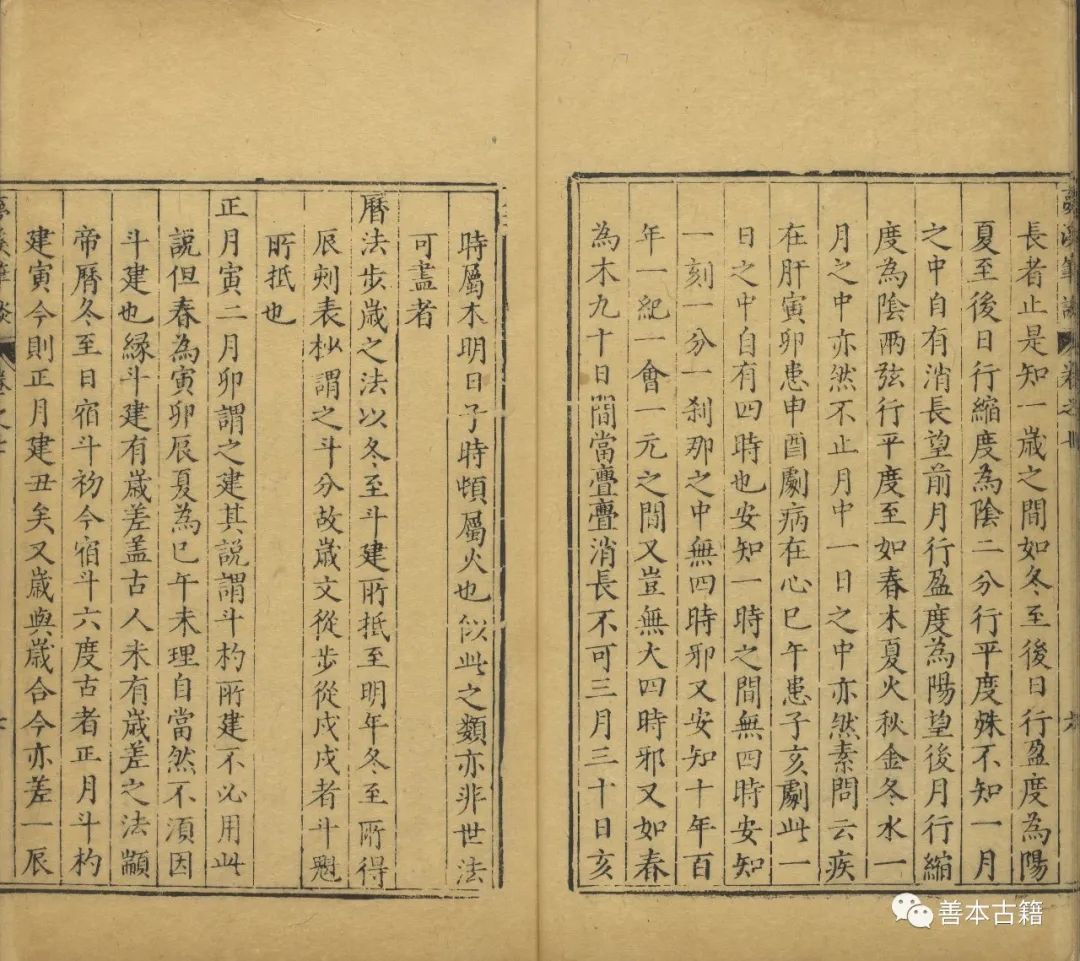 長者止是知一歲之間如冬至後日行盈度為陽
夏至後日行縮度為陰二分行平度殊不知一月
之中自有消長望前月行盈度為陽望後月行縮
度為陰兩弦行平度至如春木夏火秋金冬水一
月之中亦然不止月中一日之中亦然素問云疾
在肝寅卯患申酉劇病在心巳午患子亥劇此一
日之中自有四時也安知一時之間無四時安知
一刻一分一刹那之中無四時邪又安知十年百
年一紀一會一元之間又豈無大四時邪又如春
為木九十日間當亹亹消長不可三月三十日亥
時屬木明日子時頓屬火也似此之類亦非世法
可盡者
曆法步歲之法以冬至斗建所抵至明年冬至所得
辰刻衰杪謂之斗分故歲文從步從戌戌者斗魁
所抵也
正月寅二月卯謂之建其說謂斗杓所建不必用此
說但春為寅卯辰夏為巳午未理自當然不須因
斗建也緣斗建有歲差蓋古人未有歲差之法顓
帝曆冬至日宿斗初今宿斗六度古者正月斗杓
建寅今則正月建丑矣又歲與歲合今亦差一辰
夢溪筆談
善本古籍